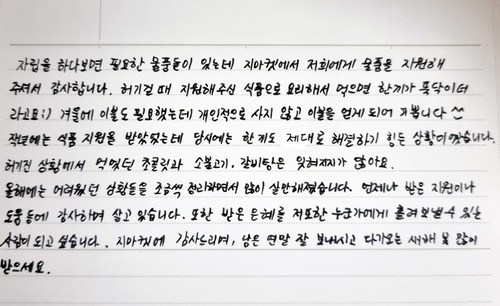 자립을 하다보면 필요한 물품들이 있는데 지마켓에서 저희에게 물품을 지원해
주셔서 감사합니다. 허기질 때 지원해주신 식품으로 요리해서 먹으면 한끼가 뚝딱이더
라고요:) 겨울에 이불도 필요했는데 개인적으로 사지 않고 이불을 얻게 되어 기쁩니다
작년에는 식품 지원을 받았었는데 당시에는 한 끼도 제대로 해결하기 힘든 상황이였습니다.
허기진 상황에서 먹었던 초콜릿과 소불고기, 갈비탕은 잊혀지지가 않아요.
올해에는 어려웠던 상황들을 조금씩 정리하면서 많이 살만해졌습니다. 언제나 받은 지원이나
도움들에 감사하며 살고 있습니다. 또한 받은 은혜를 저또한 누군가에게 흘려보낼 수 있는
사람이 되고 싶습니다. 지마켓에 감사드리며, 남은 연말 잘 보내시고 다가오는 새해 복 많이
받으세요.